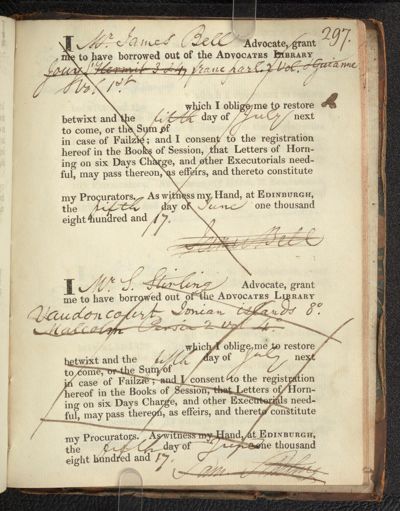 297.
I Mr. James Bell Advocate, grant
me to have borrowed out of the ADVOCATES LIBRARY
Hermit 3 & 4 franc parl. 2 Vol. & Guianne
Vol. 1st
which I oblige me to restore
betwixt and the fifth day of July next
to come, or the Sum of
in case of Failzie; and I consent to the registration
hereof in the Books of Session, that Letters of Horn-
ing on six Days Charge, and other Executorials need-
ful, may pass thereon, as effeirs, and thereto constitute
my Procurators. As witness my Hand, at EDINBURGH,
the fifth day of June one thousand
eight hundred and 17.
James Bell
I Mr. S. Stirling Advocate, grant
me to have borrowed out of the ADVOCATES LIBRARY
Vaudoncourt Ionian islands 8o
Malcolm Persia 2 vol 4o
which I oblige me to restore
betwixt and the fifth day of July next
to come, or the Sum of
in case of Failzie; and I consent to the registration
hereof in the Books of Session, that Letters of Horn-
ing on six Days Charge, and other Executorials need-
ful, may pass thereon, as effeirs, and thereto constitute
my Procurators. As witness my Hand, at EDINBURGH,
the fifth day of June one thousand
eight hundred and 17.